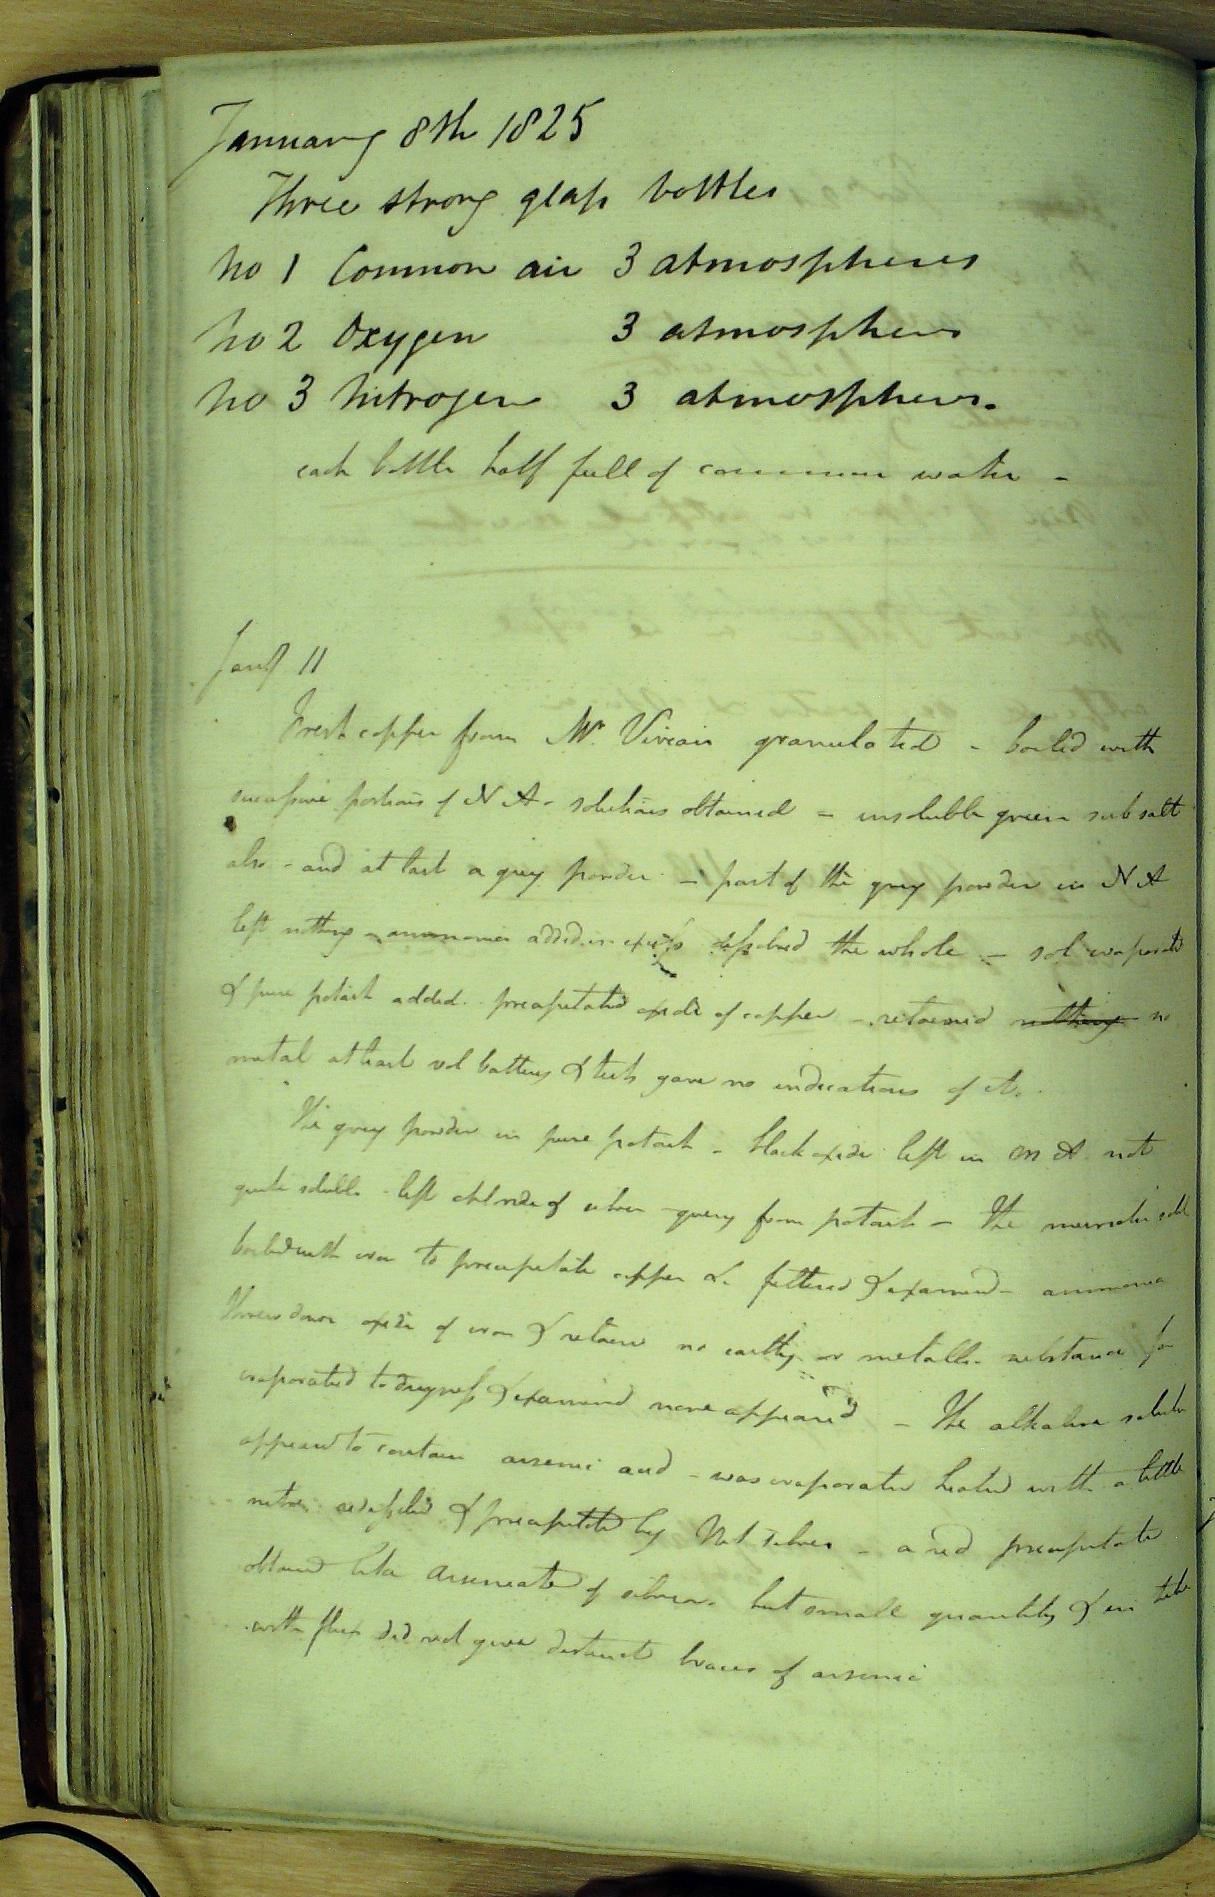 January 8th 1825
Three strong glass bottles
No 1 Common air 3 atmospheres
No 2 Oxygen 3 atmospheres
No 3 Nitrogen 3 atmospheres.
each bottle half full of common water -
Jany 11
copper from Mr. Vivian granulated - boiled with
successive portions of N A - solutions obtained - insoluble green sub salt
also - and at last a grey powder - part of the grey powder in N A
left nothing - ammonia added in excess dissolved the whole - sol evaporated
& pure potash added precipitated oxide of copper - retained nothing no
metal at least vol battery & tests gave no indications of it.
The grey powder in pure potash - black oxide left in M A not
quite soluble - left chloride of silver - from potash - The muriatic sol
boiled with iron to precipitate copper &c filtered & examined - ammonia
threw down oxide of iron & retains no earthy or metallic substance for
evaporated to dryness & examined none appeared - The alkaline solution
appeared to contain arsenic acid - was evaporated heated with a little
nitre redissolved & precipitated by Nit silver - a red precipitate
obtained like arseniate of silver - but small quantity & in tube
with flux did not give distinct traces of arsenic